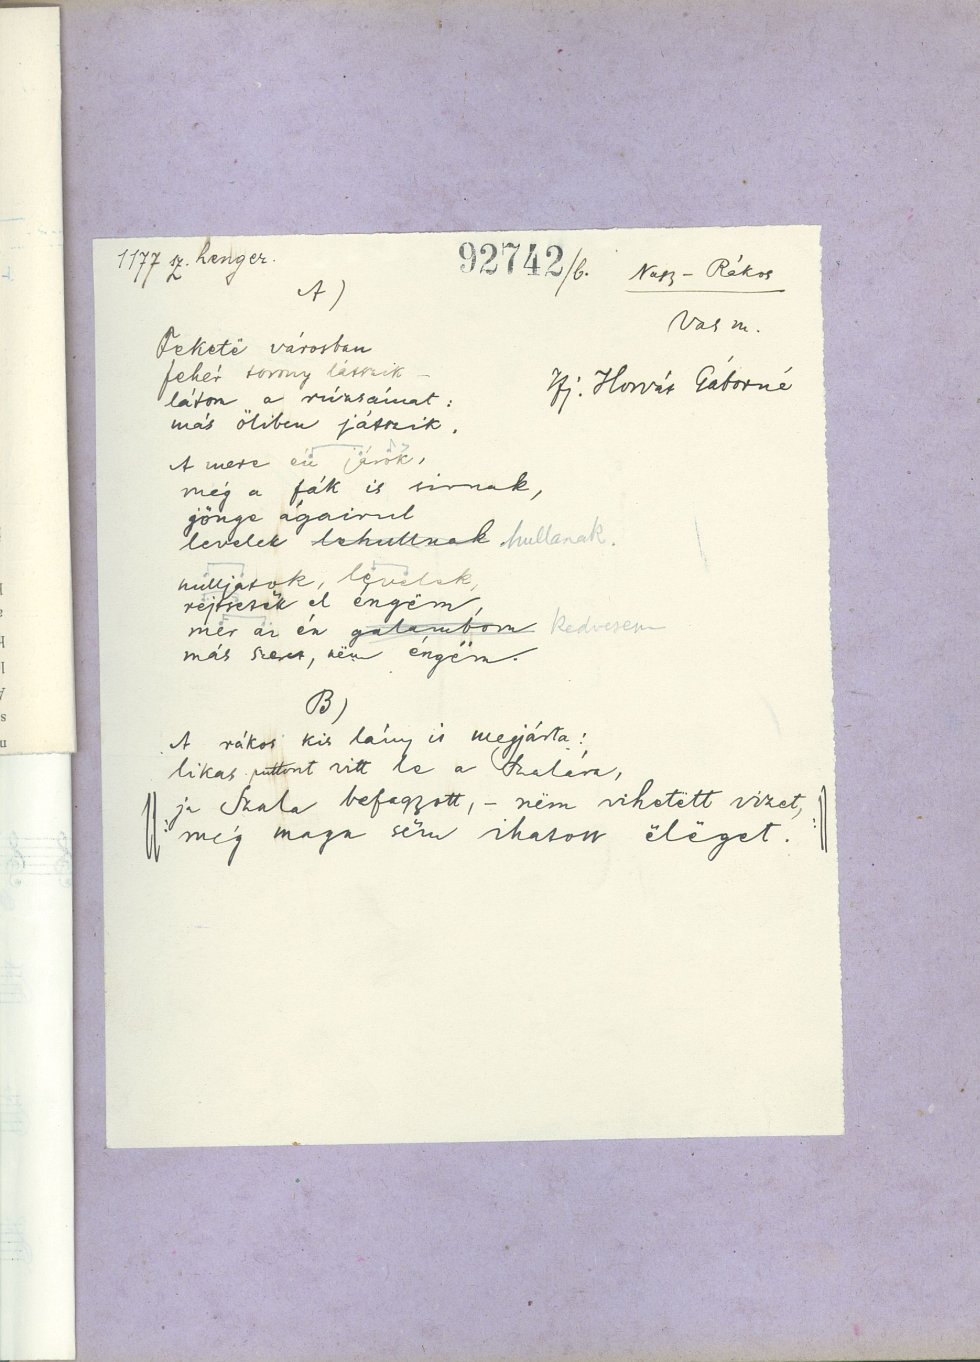 1177 sz. henger.
92742/b.
Nagy-Rákos
Vas m.
Ifj. Horvát Gáborné
A)
Feketë városban
fehér torony látszik –
látom a rúzsámat:
más öliben játszik.
A mere én járok,
még a fák is sirnak,
gönge ágairul
levelek lehullnak hullanak.
hulljatok, levelek,
rejtsetëk el éngëm,
mer az én galambom kedvesem
más szeret, nëm éngëm.
B)
A rákos kis lány is megjárta:
likas puttont vitt le a Szalára,
‖: ja Szala befagyott, – nëm vihetëtt vizet,
még maga sëm ihatott ëlëget. :‖